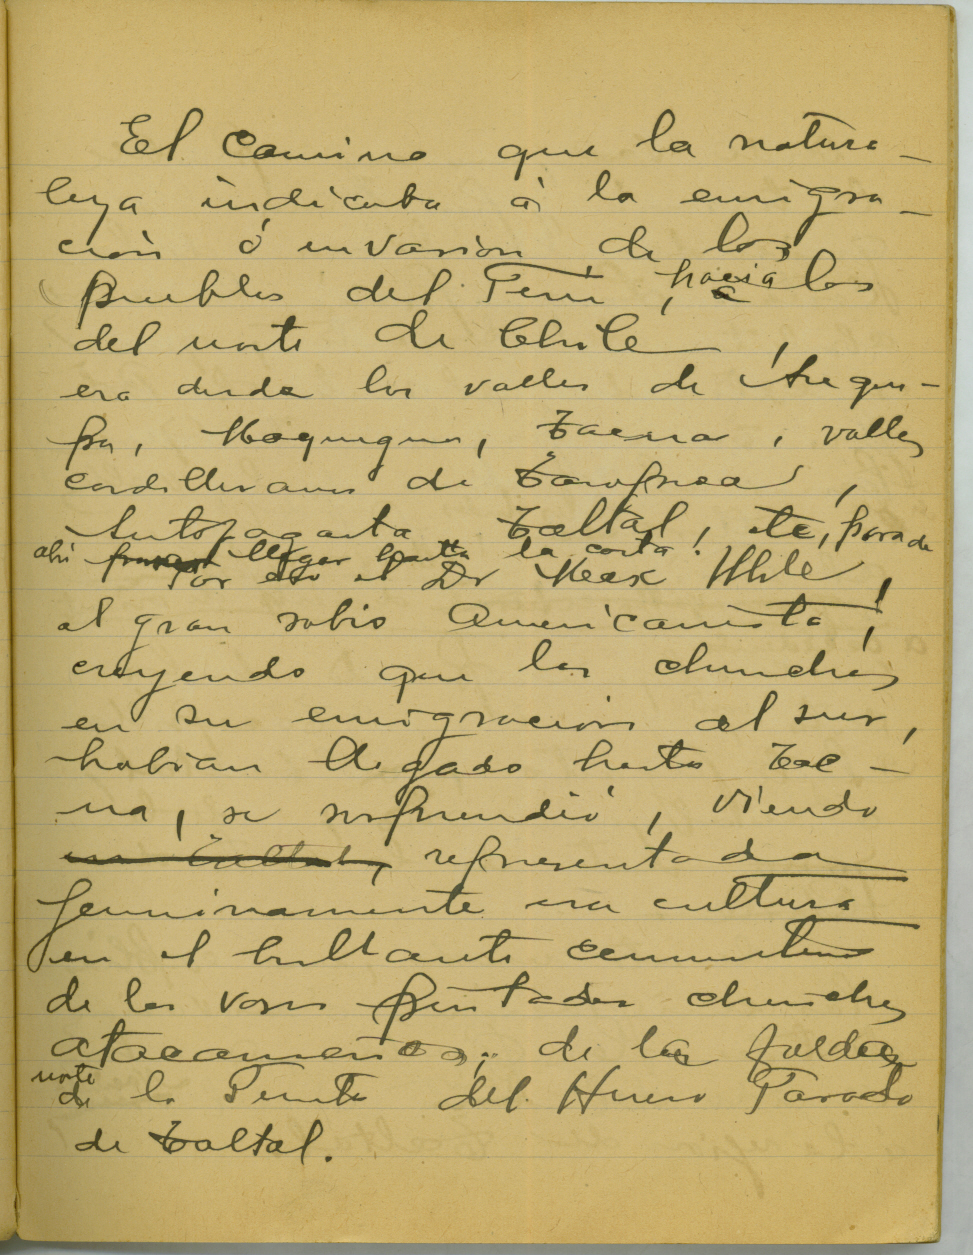 El camino que la natura-
leza indicaba á la emigra-
ción ó invasión de los
pueblos del Perú, hacia los
del norte de Chile,
era desde los valles de Arequi-
pa, Moquegua, Tacna, valles
cordilleranos de Tarapacá,
Antofagasta Taltal, etc, para de
ahi llegar hasta la costa!
Por eso el Dr Max Uhle,
el gran sabio Americanista!
creyendo que los chinchas
en su emigracion al sur,
habian llegado hasta Tac-
na, se sorprendió, viendo
en Taltal, representada
genuinamente esa cultura
en el brillante cementerio
de los vasos pintados chinchas
atacameños; de las faldas
norte
de la Punta del Hueso Parado
de Taltal.